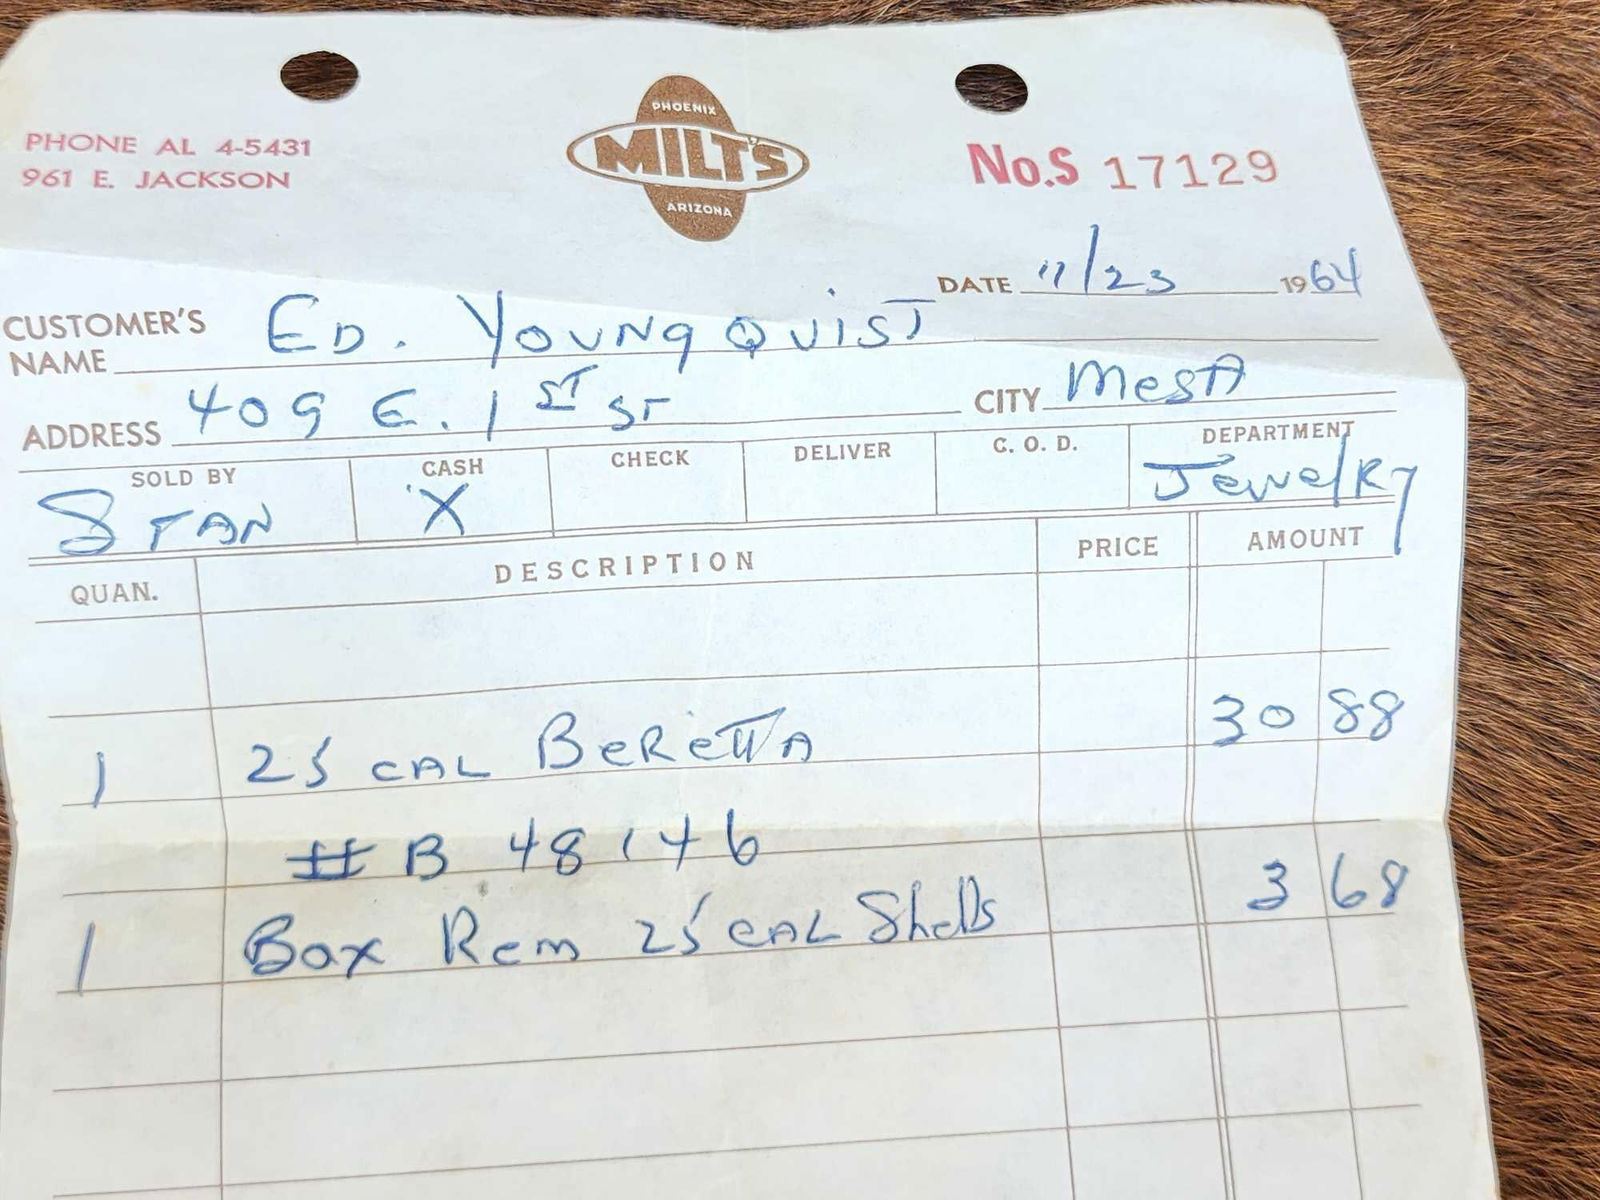 PHONE AL 4-5431
961 E. JACKSON
PHOENIX
MILT'S
ARIZONA
No.S 17129
DATE 11/23 1964
CUSTOMER'S NAME ED. YOUNGQUIST
ADDRESS 409 E. 1ST ST CITY MESA
SOLD BY CASH CHECK DELIVER C. O. D. DEPARTMENT
STAN X Jewelry
QUAN. DESCRIPTION PRICE AMOUNT
1 25 CAL BeReTTA 30 88
# B 48146
1 Box Rem 25 CAL Shells 3 68